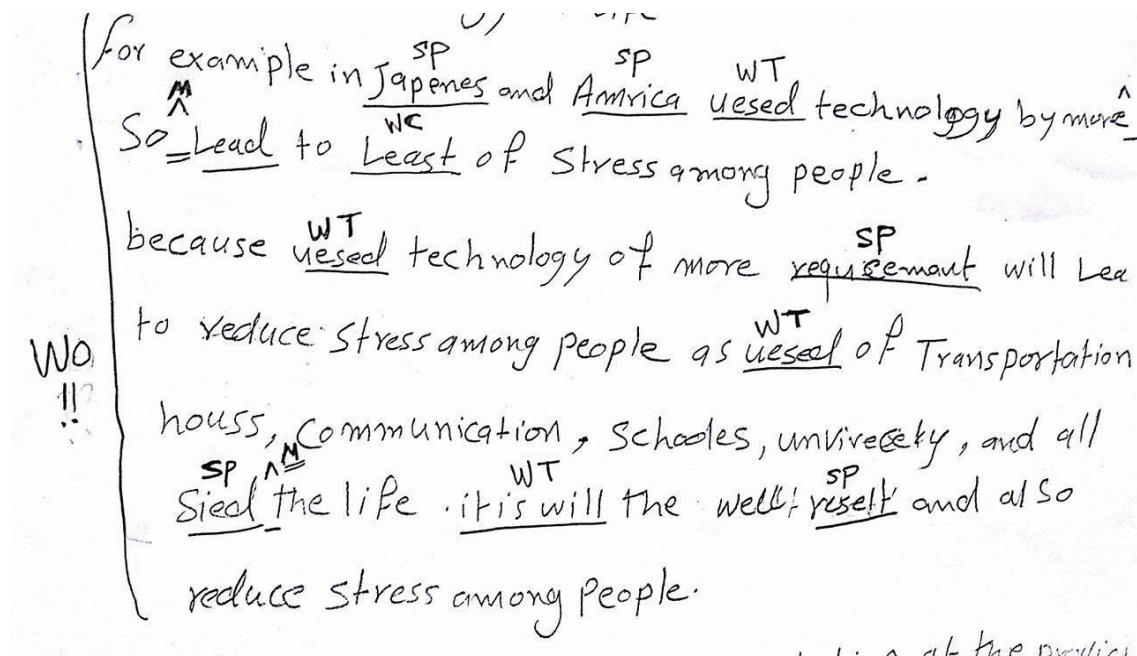 SP SP WT
for example in Japenes and Amrica uesed technology by more
M WC
So Lead to Least of Stress among people.
WT SP
because uesed technology of more requisemant will Lea
WT
to reduce stress among people as uesed of Transportation
WO
!!
houss, communication, schooles, unvirecety, and all
SP M WT SP
Sied the life. it is will the well reselt and also
reduce stress among people.
at the